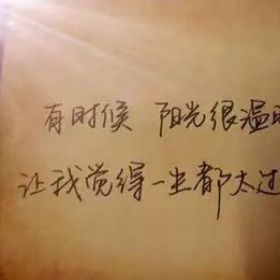 有时候 阳光很温
让我觉得一生都太过